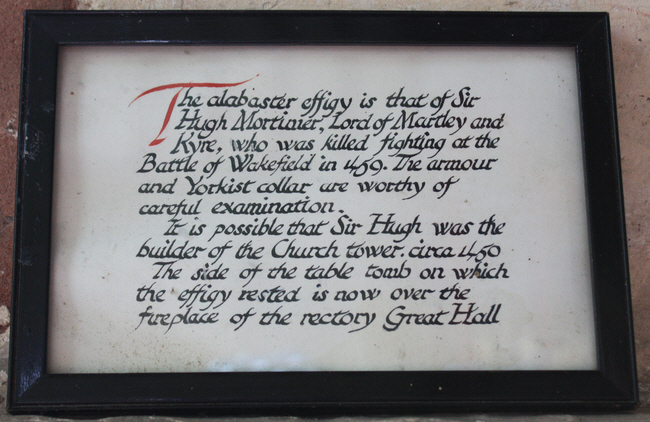 The alabaster effigy is that of Sir
Hugh Mortimer, Lord of Martley and
Kyre, who was killed fighting at the
Battle of Wakefield in 1459. The armour
and Yorkist collar are worthy of
careful examination.
It is possible that Sir Hugh was the
builder of the Church tower. circa 1450
The side of the table tomb on which
the effigy rested is now over the
fireplace of the rectory Great Hall